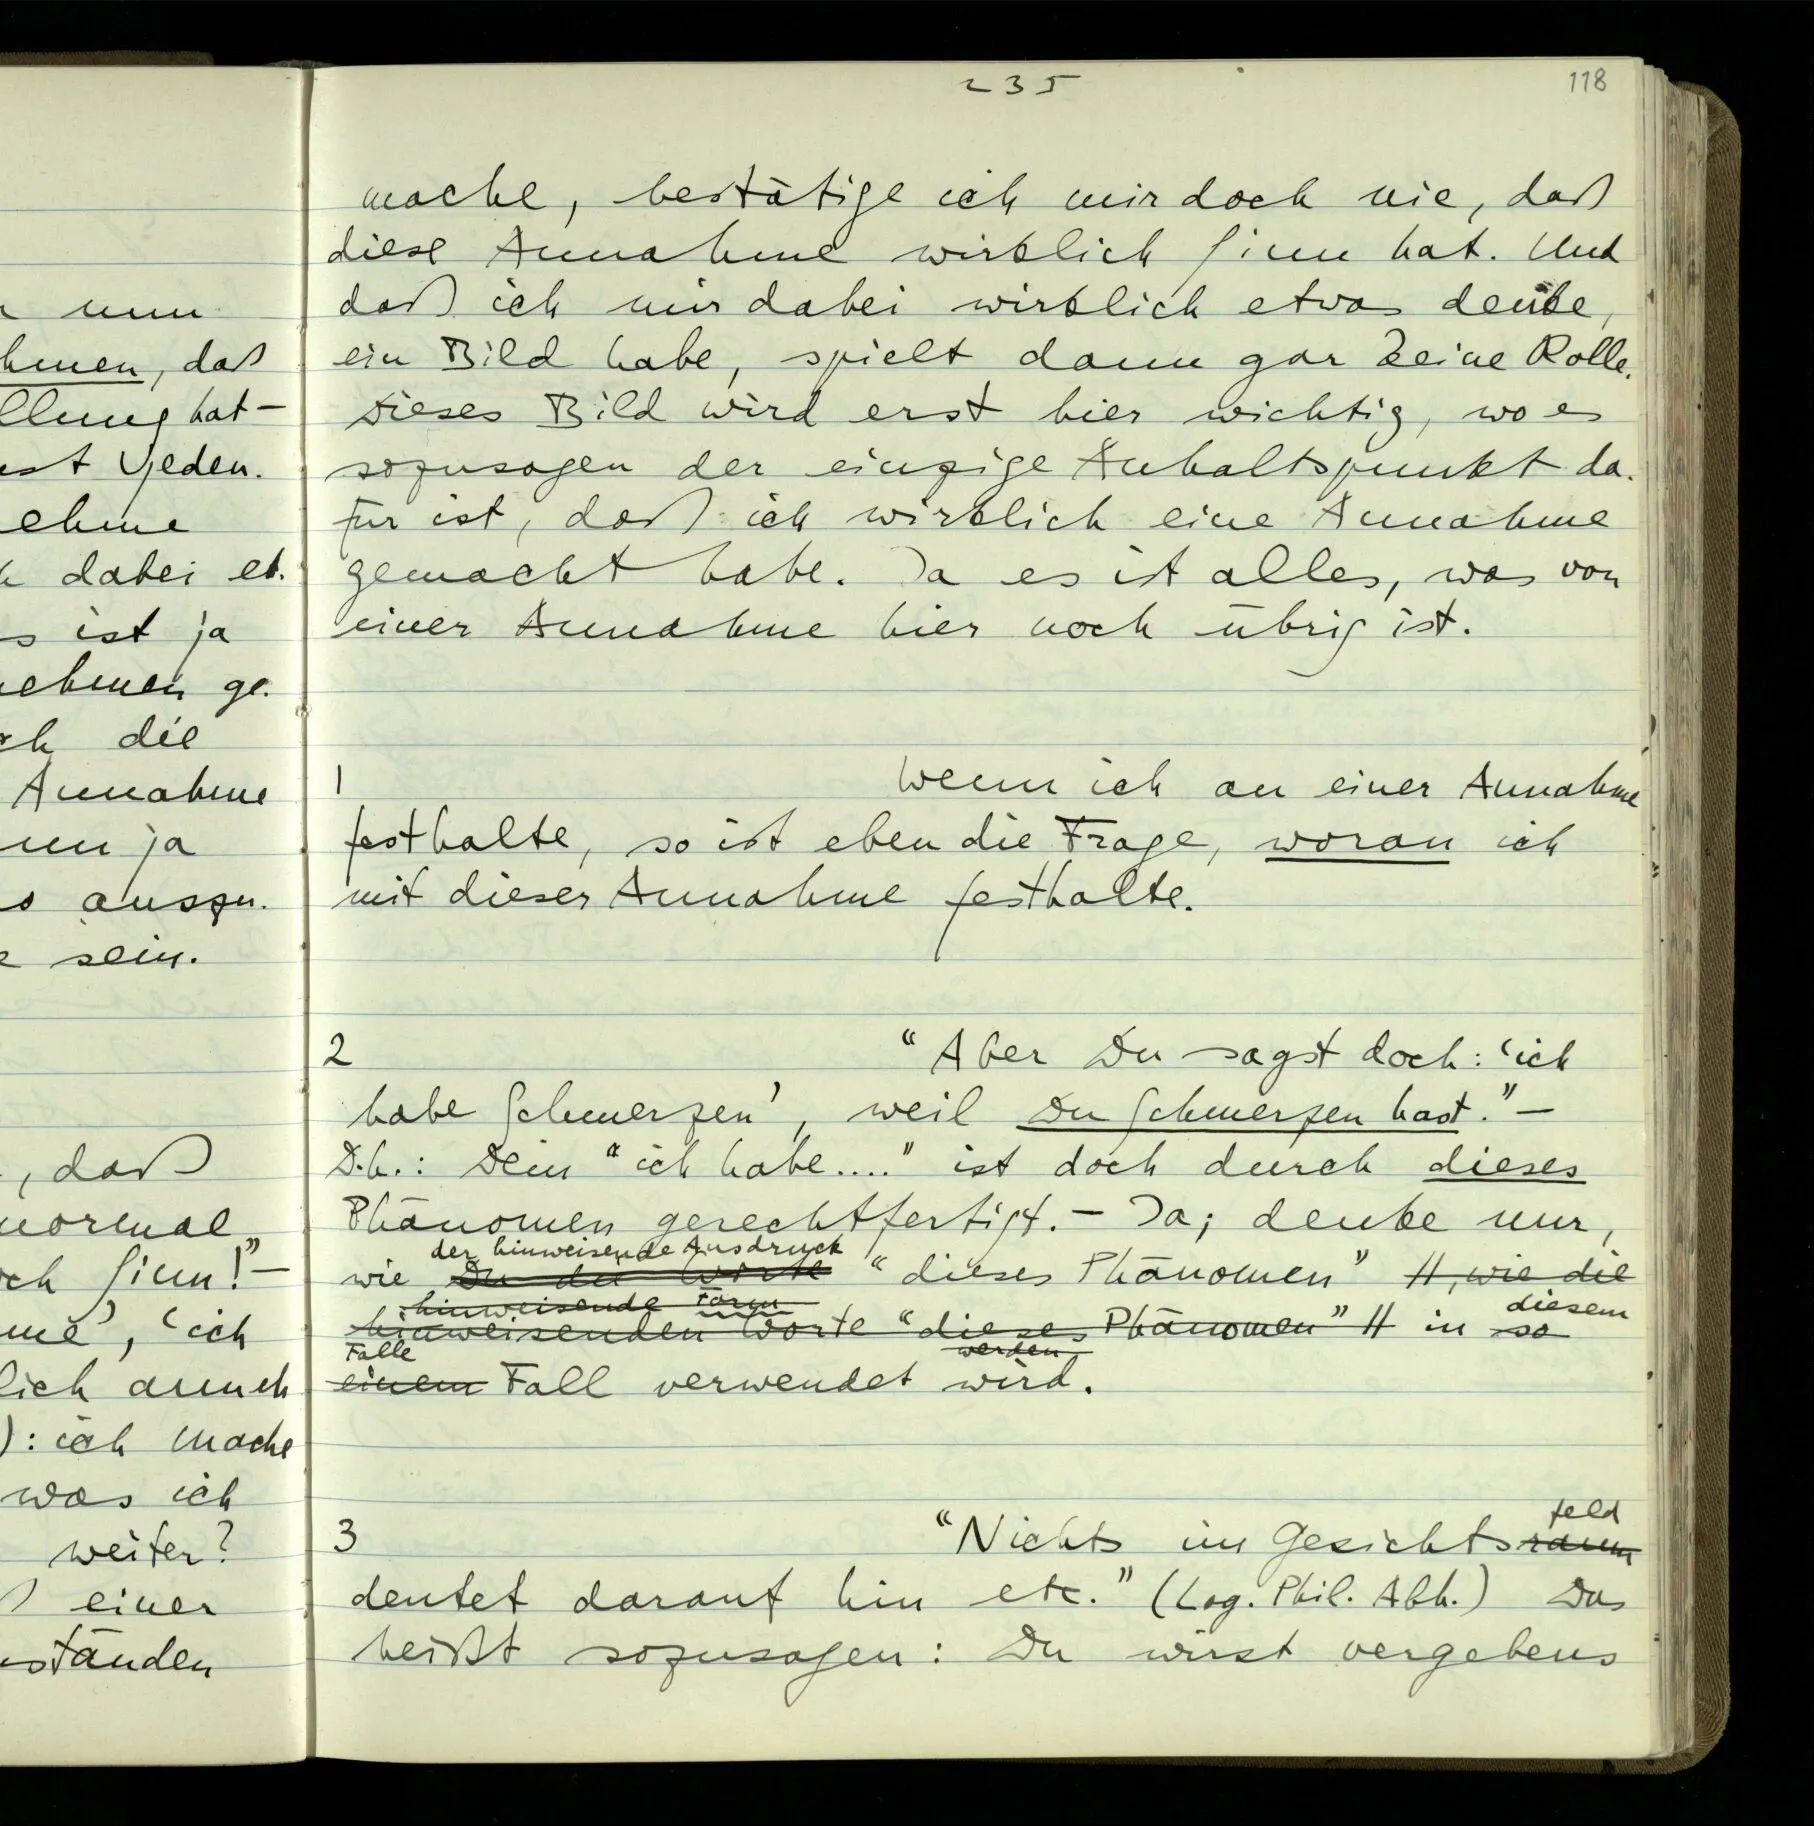 n nun
hmen, daß
llung hat –
est Jeden.
ehme
h dabei et-
s ist ja
nehmen ge-
ch die
Annahme
nn ja
auszu-
sein.
, daß
normal
och Sinn!" –
me', 'ich
lich auch
): ich mache
was ich
weiter?
ß einer
ständen
235
118
mache, bestätige ich mir doch nie, daß
diese Annahme wirklich Sinn hat. Und
daß ich mir dabei wirklich etwas denke,
ein Bild habe, spielt dann gar keine Rolle.
Dieses Bild wird erst hier wichtig, wo es
sozusagen der einzige Anhaltspunkt da-
für ist, daß ich wirklich eine Annahme
gemacht habe. Ja es ist alles, was von
einer Annahme hier noch übrig ist.
1 Wenn ich an einer Annahme
festhalte, so ist eben die Frage, woran ich
mit dieser Annahme festhalte.
2 "Aber Du sagst doch: 'ich
habe Schmerzen', weil Du Schmerzen hast." –
D.h.: Dein "ich habe...." ist doch durch dieses
Phänomen gerechtfertigt. – Ja; denke nur,
der hinweisende Ausdruck
wie Du die Worte "dieses Phänomen" //, wie die
hinweisende Form diesem
hinweisenden Worte "dieses Phänomen" // in so
Falle werden
einem Fall verwendet wird.
feld
3 "Nichts im Gesichtsraum
deutet darauf hin etc." (Log. Phil. Abh.) Das
heißt sozusagen: Du wirst vergebens